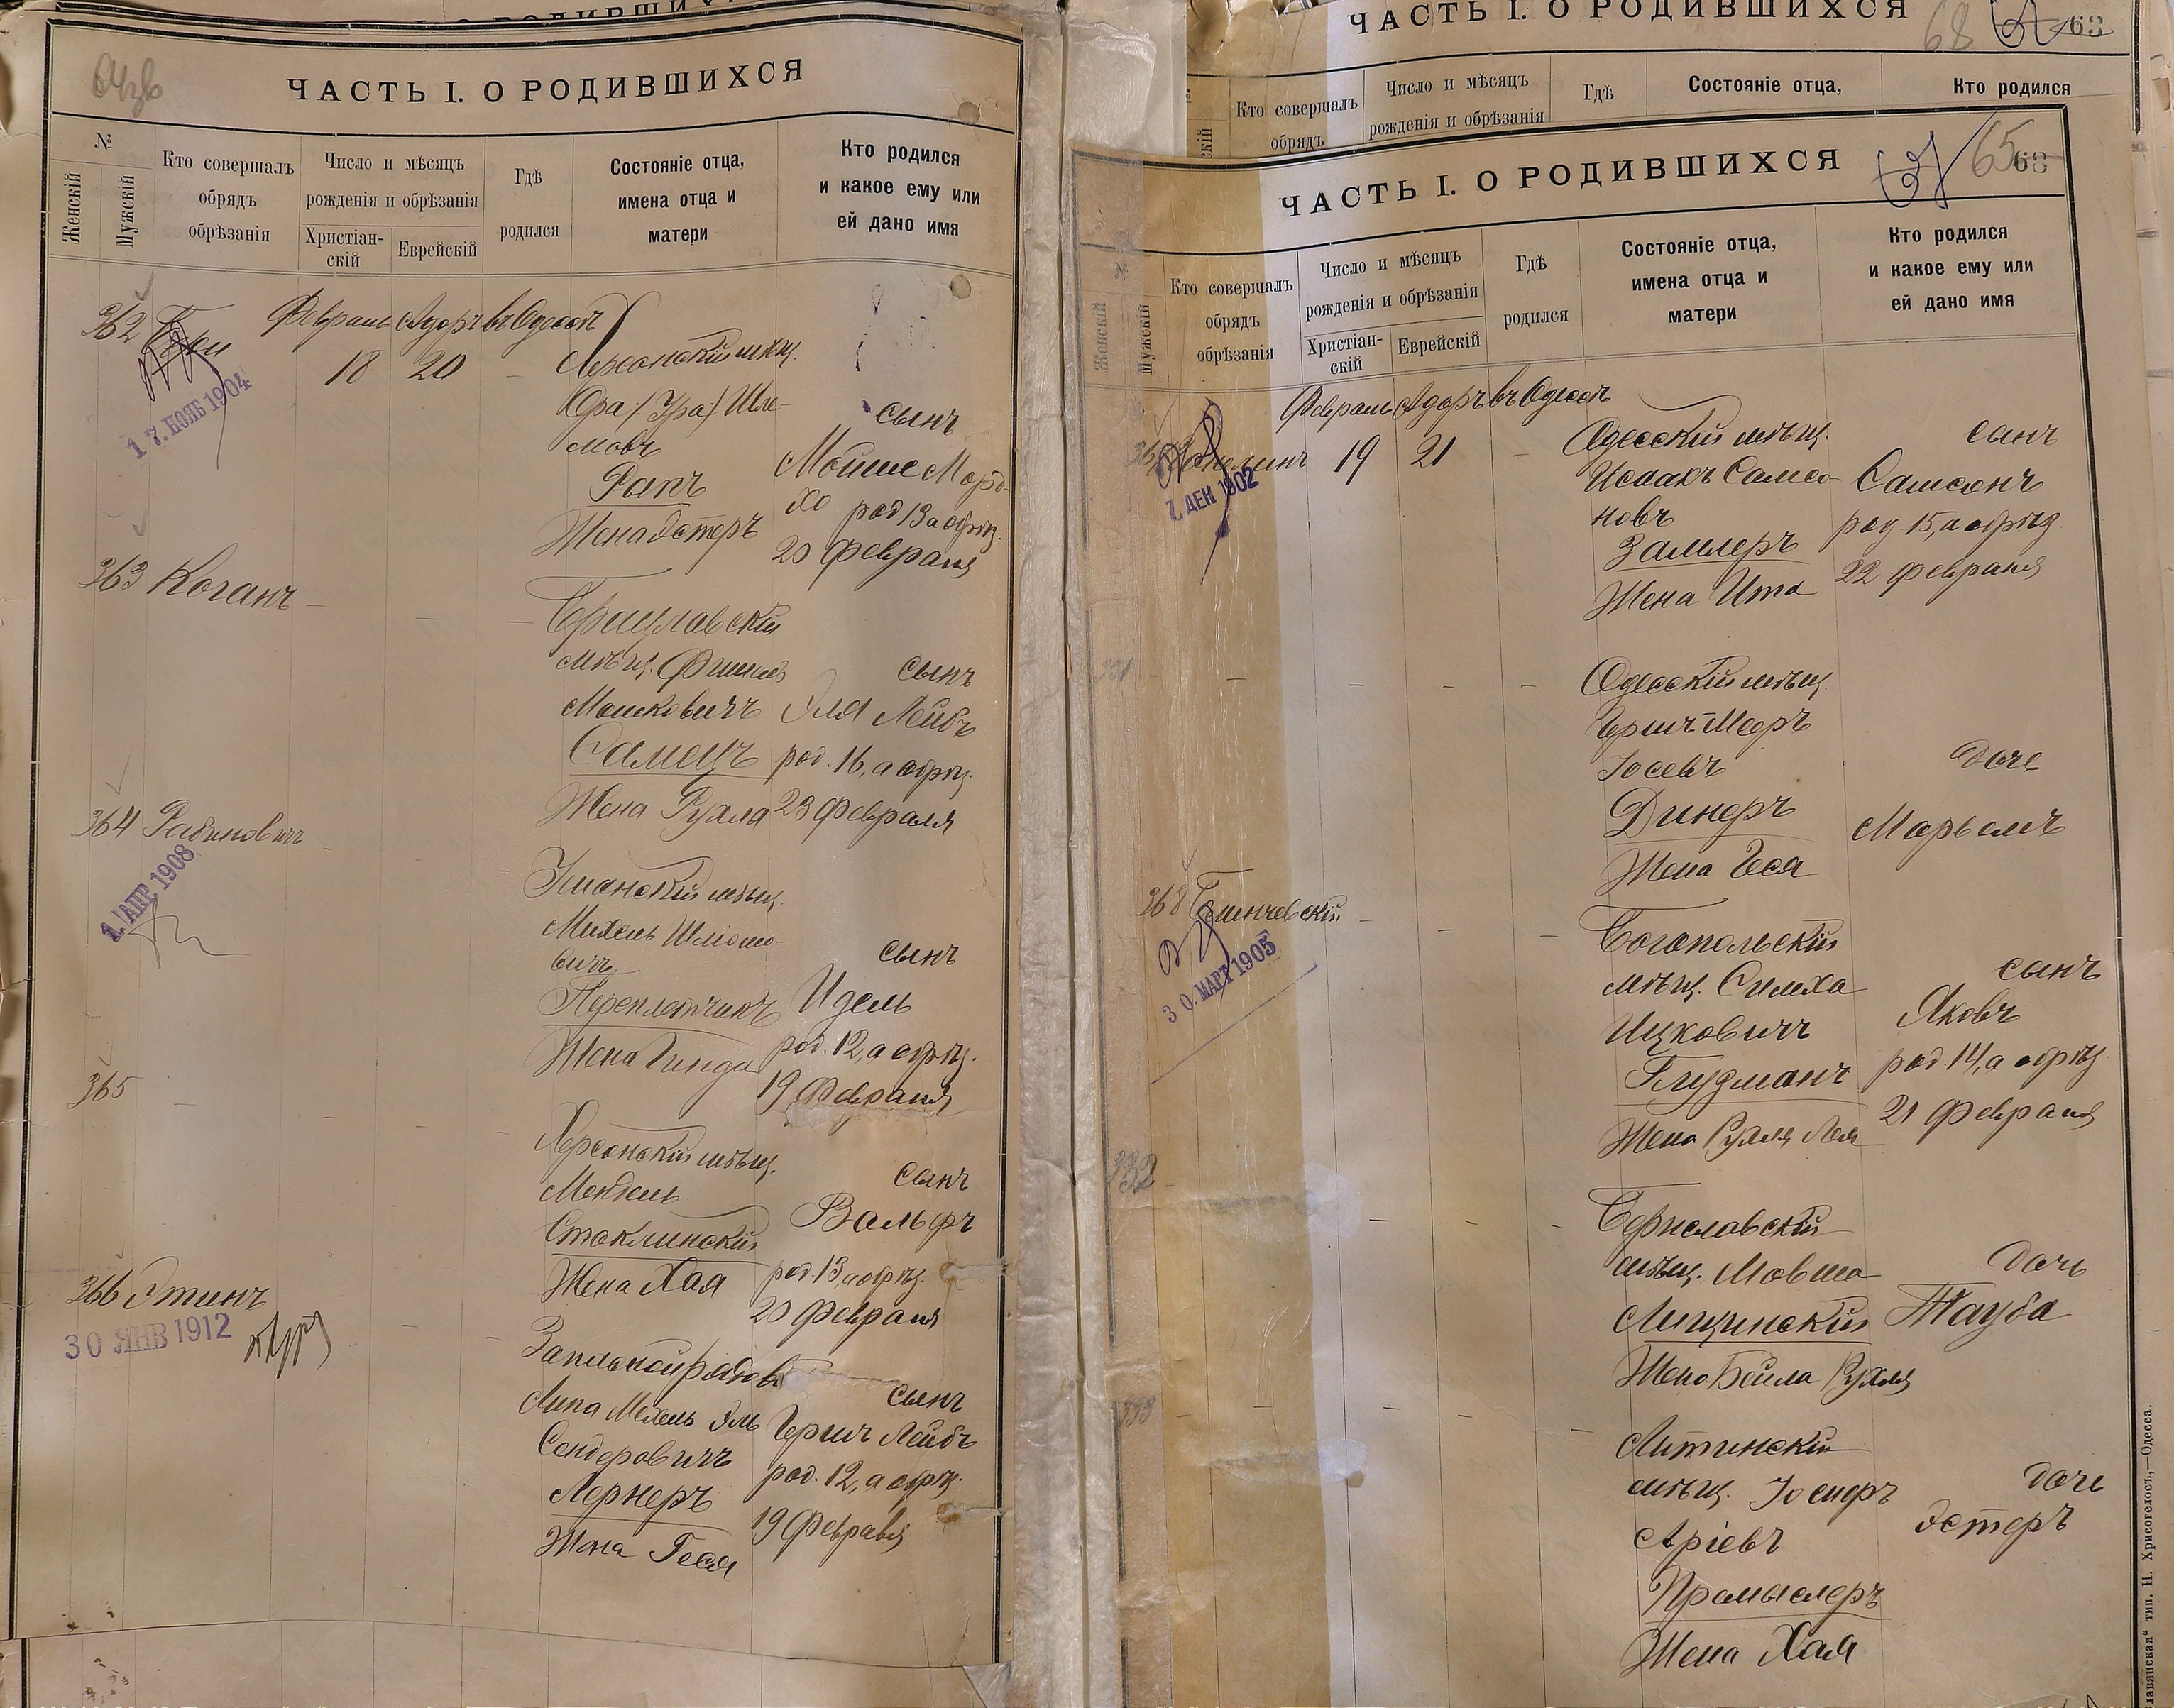 ЧАСТЬ I. О РОДИВШИХСЯ
№
Женскій
Мужскій
Кто совершалъ
обрядъ
обрѣзанія
Число и мѣсяцъ
рожденія и обрѣзанія
Христіан-
скій
Еврейскій
Гдѣ
родился
Состояніе отца,
имена отца и
матери
Кто родился
и какое ему или
ей дано имя
362
Февраль Адоръ въ Одессѣ
18 20
17. НОЯБ 1904
Херсонскій мѣщ.
Юра / Ура / Шле-
мовъ
Рапъ
Жена Эстеръ
сынъ
Мойше Морд-
хо род 13 а обрѣз.
20 Февраля
363 Коганъ
Брацлавскій
мѣщ. Фишель
Мошковичъ
Самецъ
Жена Рухла
сынъ
Эля Лейбъ
род. 16, а обрѣз.
23 Февраля
364 Рабиновичъ
1. АПР. 1908
Уманскій мѣщ.
Михель Шлiомо-
вичъ
Переплетчикъ
Жена Гинда
сынъ
Идель
род. 12, а обрѣз.
19 Февраля
365
Херсонскій мѣщ.
Мендель
Стоклинскій
Жена Хая
сынъ
Вольфъ
род 13, а обрѣз.
20 Февраля
366 Этинъ
30 ЯНВ 1912
Запасной рядов.
Липа Мехель Эль
Сендеровичъ
Лернеръ
Жена Геся
сынъ
Гершъ Лейбъ
род. 12, а обрѣз.
19 Февраля
ЧАСТЬ I. О РОДИВШИХСЯ
68 63
Кто совершалъ
обрядъ
Число и мѣсяцъ
рожденія и обрѣзанія
Гдѣ
Состояніе отца,
Кто родился
ЧАСТЬ I. О РОДИВШИХСЯ
65 68
№
Женскій
Мужскій
Кто совершалъ
обрядъ
обрѣзанія
Число и мѣсяцъ
рожденія и обрѣзанія
Христіан-
скій
Еврейскій
Гдѣ
родился
Состояніе отца,
имена отца и
матери
Кто родился
и какое ему или
ей дано имя
Февраль Адоръ въ Одессѣ
19 21
7. ДЕК 1902
Одесскій мѣщ.
Исаакъ Самсо-
новъ
Замлеръ
Жена Ита
сынъ
Самсонъ
род. 15, а обрѣз.
22 Февраля
331
Одесскій мѣщ.
Гершъ Мееръ
Іосевъ
Динеръ
Жена Геся
дочь
Марьемъ
368
30. МАРТ 1905
Богопольскій
мѣщ. Симха
Ицковичъ
Глузманъ
Жена Рухля Лея
сынъ
Яковъ
род 14, а обрѣз.
21 Февраля
332
Бериславскій
мѣщ. Мовша
Лищинскій
Жена Бейла Рухля
дочь
Тауба
333
Литинскій
мѣщ. Іосифъ
Аріевъ
Промыслеръ
Жена Хая
дочь
Эстеръ
лавянская“ тип. Н. Хрисогелосъ,—Одесса.